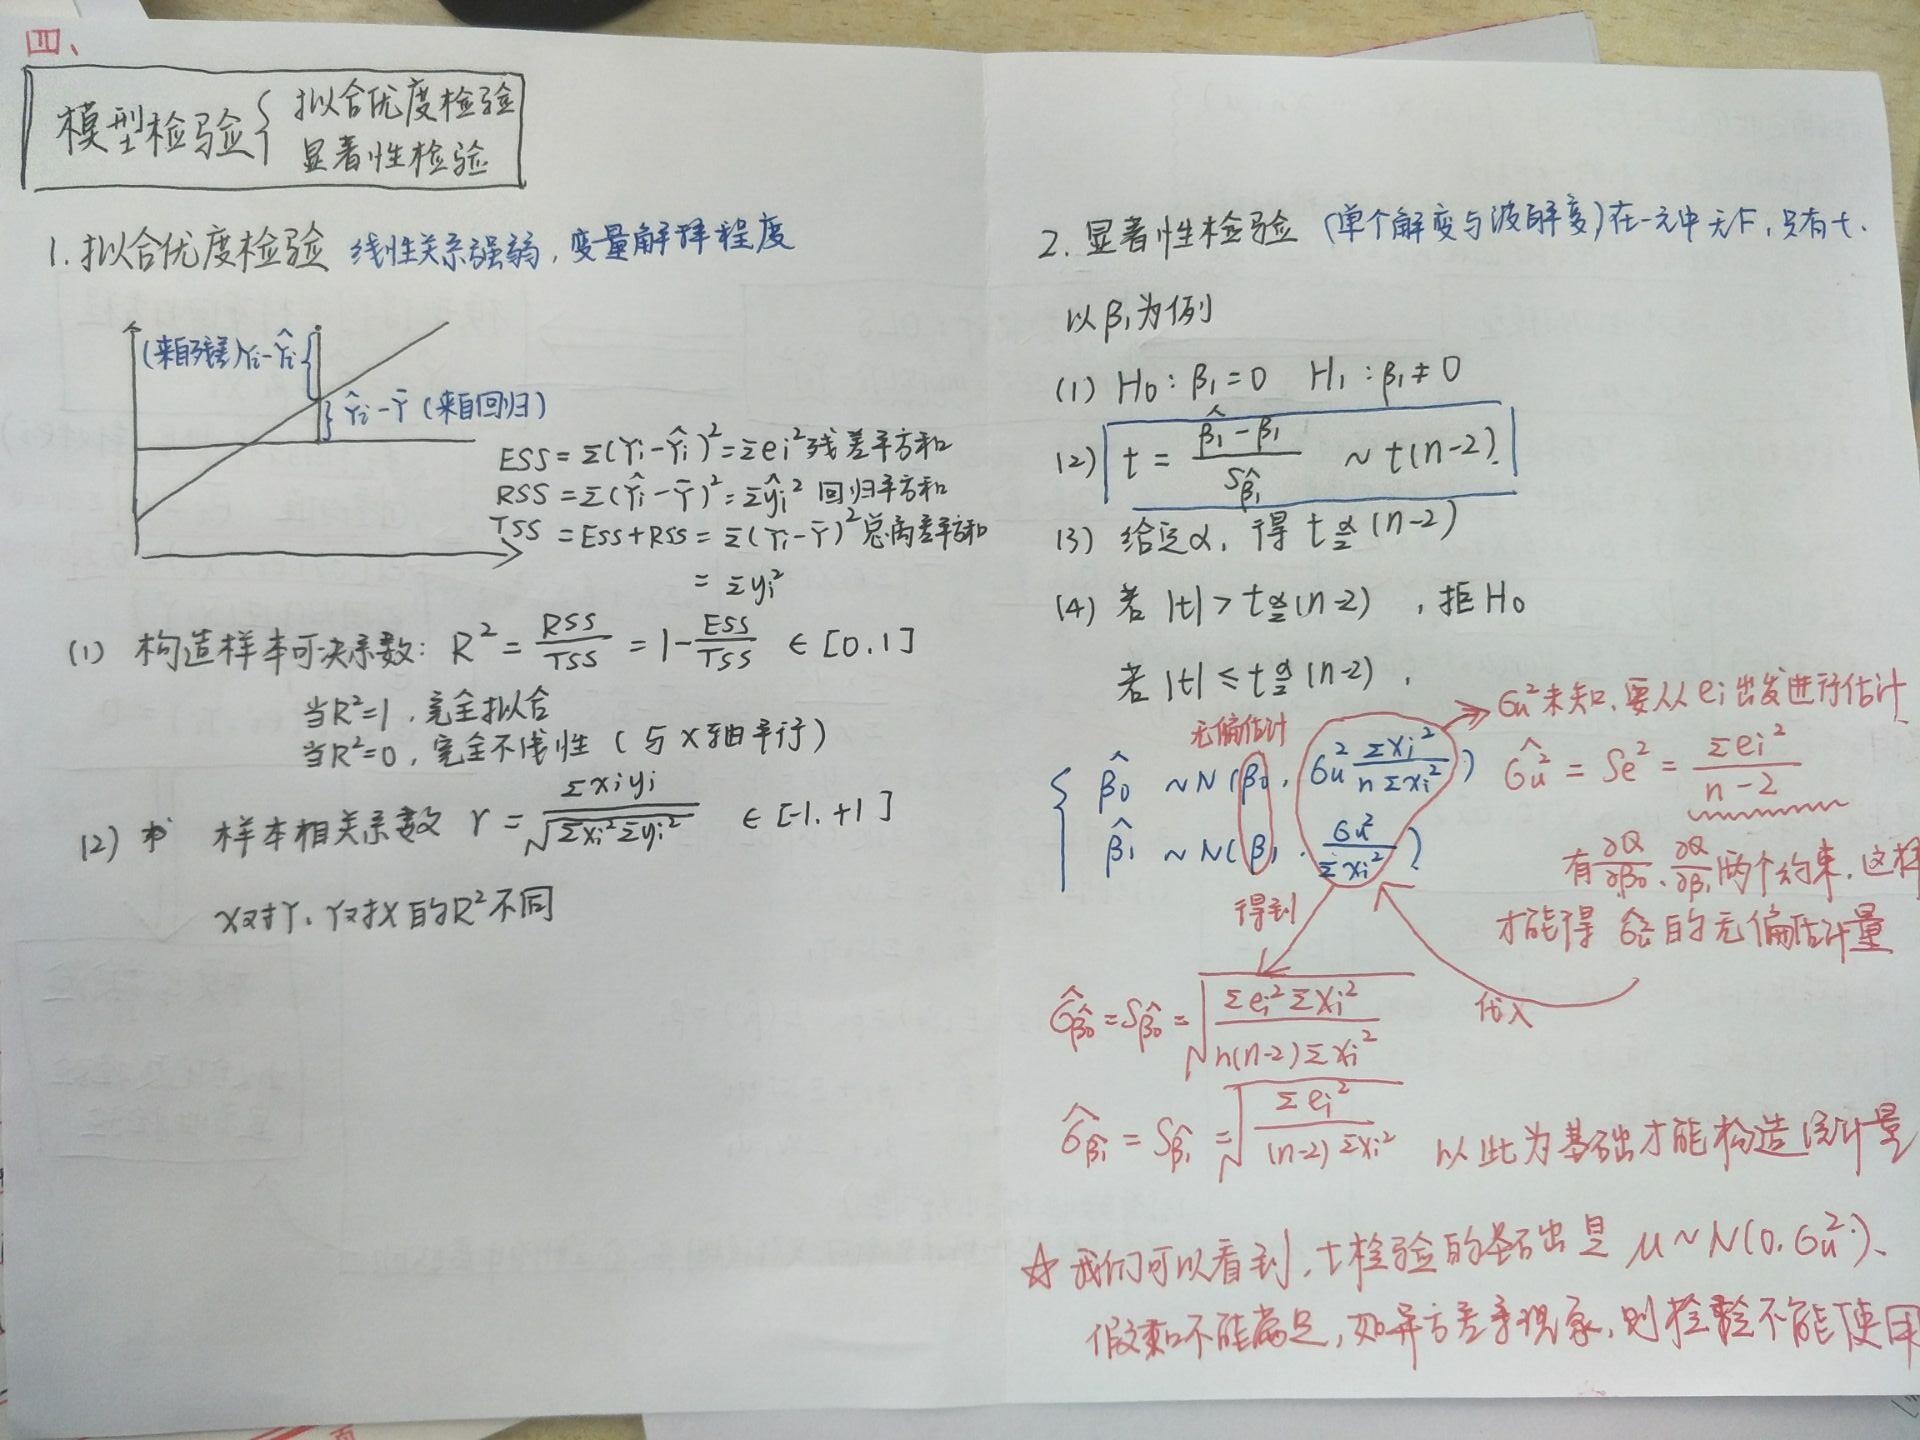 四、
模型检验{ 拟合优度检验
显著性检验
1. 拟合优度检验 线性关系强弱,变量解释程度
(来自残差)Yi-Ŷi
Ŷi-Ȳ (来自回归)
ESS = Σ(Yi-Ŷi)² = Σei² 残差平方和
RSS = Σ(Ŷi-Ȳ)² = Σŷi² 回归平方和
TSS = ESS+RSS = Σ(Yi-Ȳ)² 总离差平方和
= Σyi²
(1) 构造样本可决系数: R² = RSS/TSS = 1-ESS/TSS ∈ [0.1]
当R²=1,完全拟合
当R²=0,完全不线性(与X轴平行)
(2) 样本相关系数 r = Σxiyi/√(Σxi²Σyi²) ∈ [-1.+1]
X对Y、Y对X的R²不同
2. 显著性检验 (单个解变与被解变)在一元中无F,只有t.
以β₁为例
(1) H₀: β₁=0 H₁: β₁≠0
(2) t = (β̂₁-β₁)/Sβ̂₁ ~ t(n-2).
(3) 给定α, 得 t α/2 (n-2)
(4) 若 |t| > t α/2 (n-2) ,拒H₀
若 |t| ≤ t α/2 (n-2) ,
无偏估计
{ β̂₀ ~N(β₀, 6u² ΣXi²/(nΣxi²))
β̂₁ ~N(β₁, 6u²/Σxi²)
6u²未知,要从ei出发进行估计
6̂u² = Se² = Σei²/(n-2)
有∂Q/∂β₀、∂Q/∂β₁两个约束,这样
才能得 的无偏估计量
得到
代入
6̂β̂₀ = Sβ̂₀ = √(Σei²ΣXi²/(n(n-2)Σxi²))
6̂β̂₁ = Sβ̂₁ = √(Σei²/((n-2)Σxi²)) 以此为基础才能构造统计量
☆ 我们可以看到,t检验的基础是 μ~N(0, 6u²)、
假如不能满足,如异方差等现象,则检验不能使用